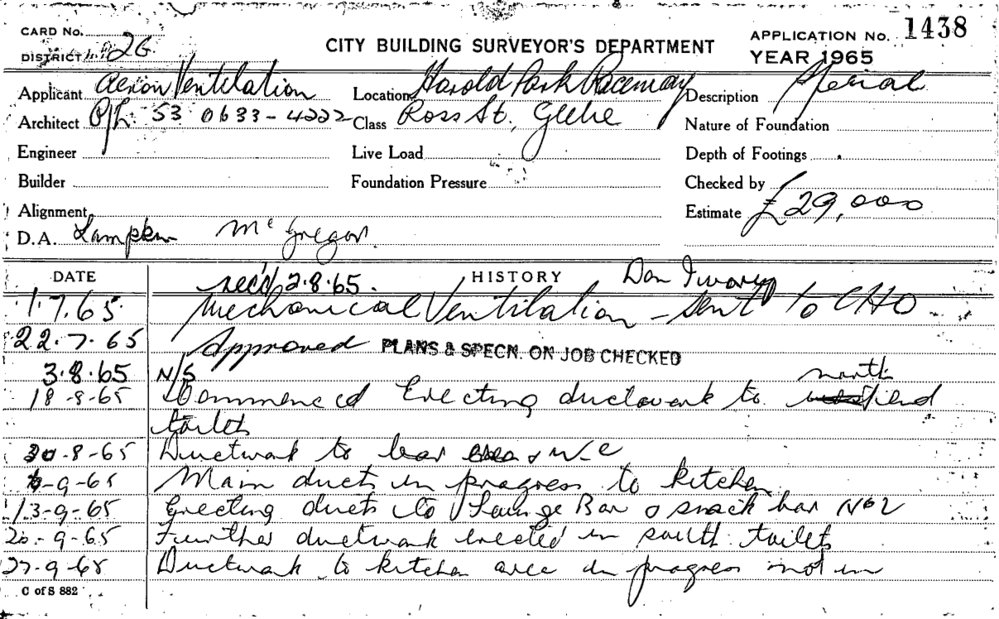 CARD No.
DISTRICT 26
CITY BUILDING SURVEYOR'S DEPARTMENT
APPLICATION No. 1438
YEAR 1965
Applicant Aeron Ventilation
Location Harold Park Raceway
Description Special
Architect P/L 53 0633-4222
Class Ross St., Glebe
Nature of Foundation
Engineer
Live Load
Depth of Footings
Builder
Foundation Pressure
Checked by
Alignment
Estimate £29,000
D.A. Lampkin McGregor.
DATE
HISTORY
rec'd 2.8.65. Don
1.7.65 Mechanical Ventilation - sent to CHO
22.7.65 Approved PLANS & SPECN. ON JOB CHECKED
3.8.65 N/S
north
18-8-65 Commenced Erecting ductwork to end
toilets
30-8-65 Ductwork to bar & W.C
6-9-65 Main ducts in progress to kitchen
13-9-65 Erecting ducts to Lounge Bar & snack bar No2
20-9-65 Further ductwork erected in south toilets
27-9-65 Ductwork to kitchen area in progress not in
C of S 882